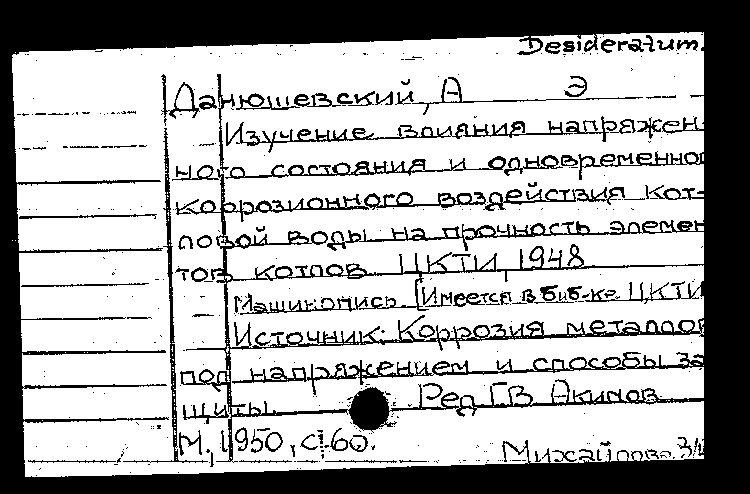 Desideratum.
Данюшевский, А Э
Изучение влияния напряжен-
ного состояния и одновременно
коррозионного воздействия кот-
ловой воды на прочность элемен
тов котлов ЦКТИ, 1948
Машинопись [Имеется в биб-ке ЦКТИ
Источник: Коррозия металлов
под напряжением и способы за
щиты. Ред Г.В Акимов
М., 1950, с. 60.
Михайлова